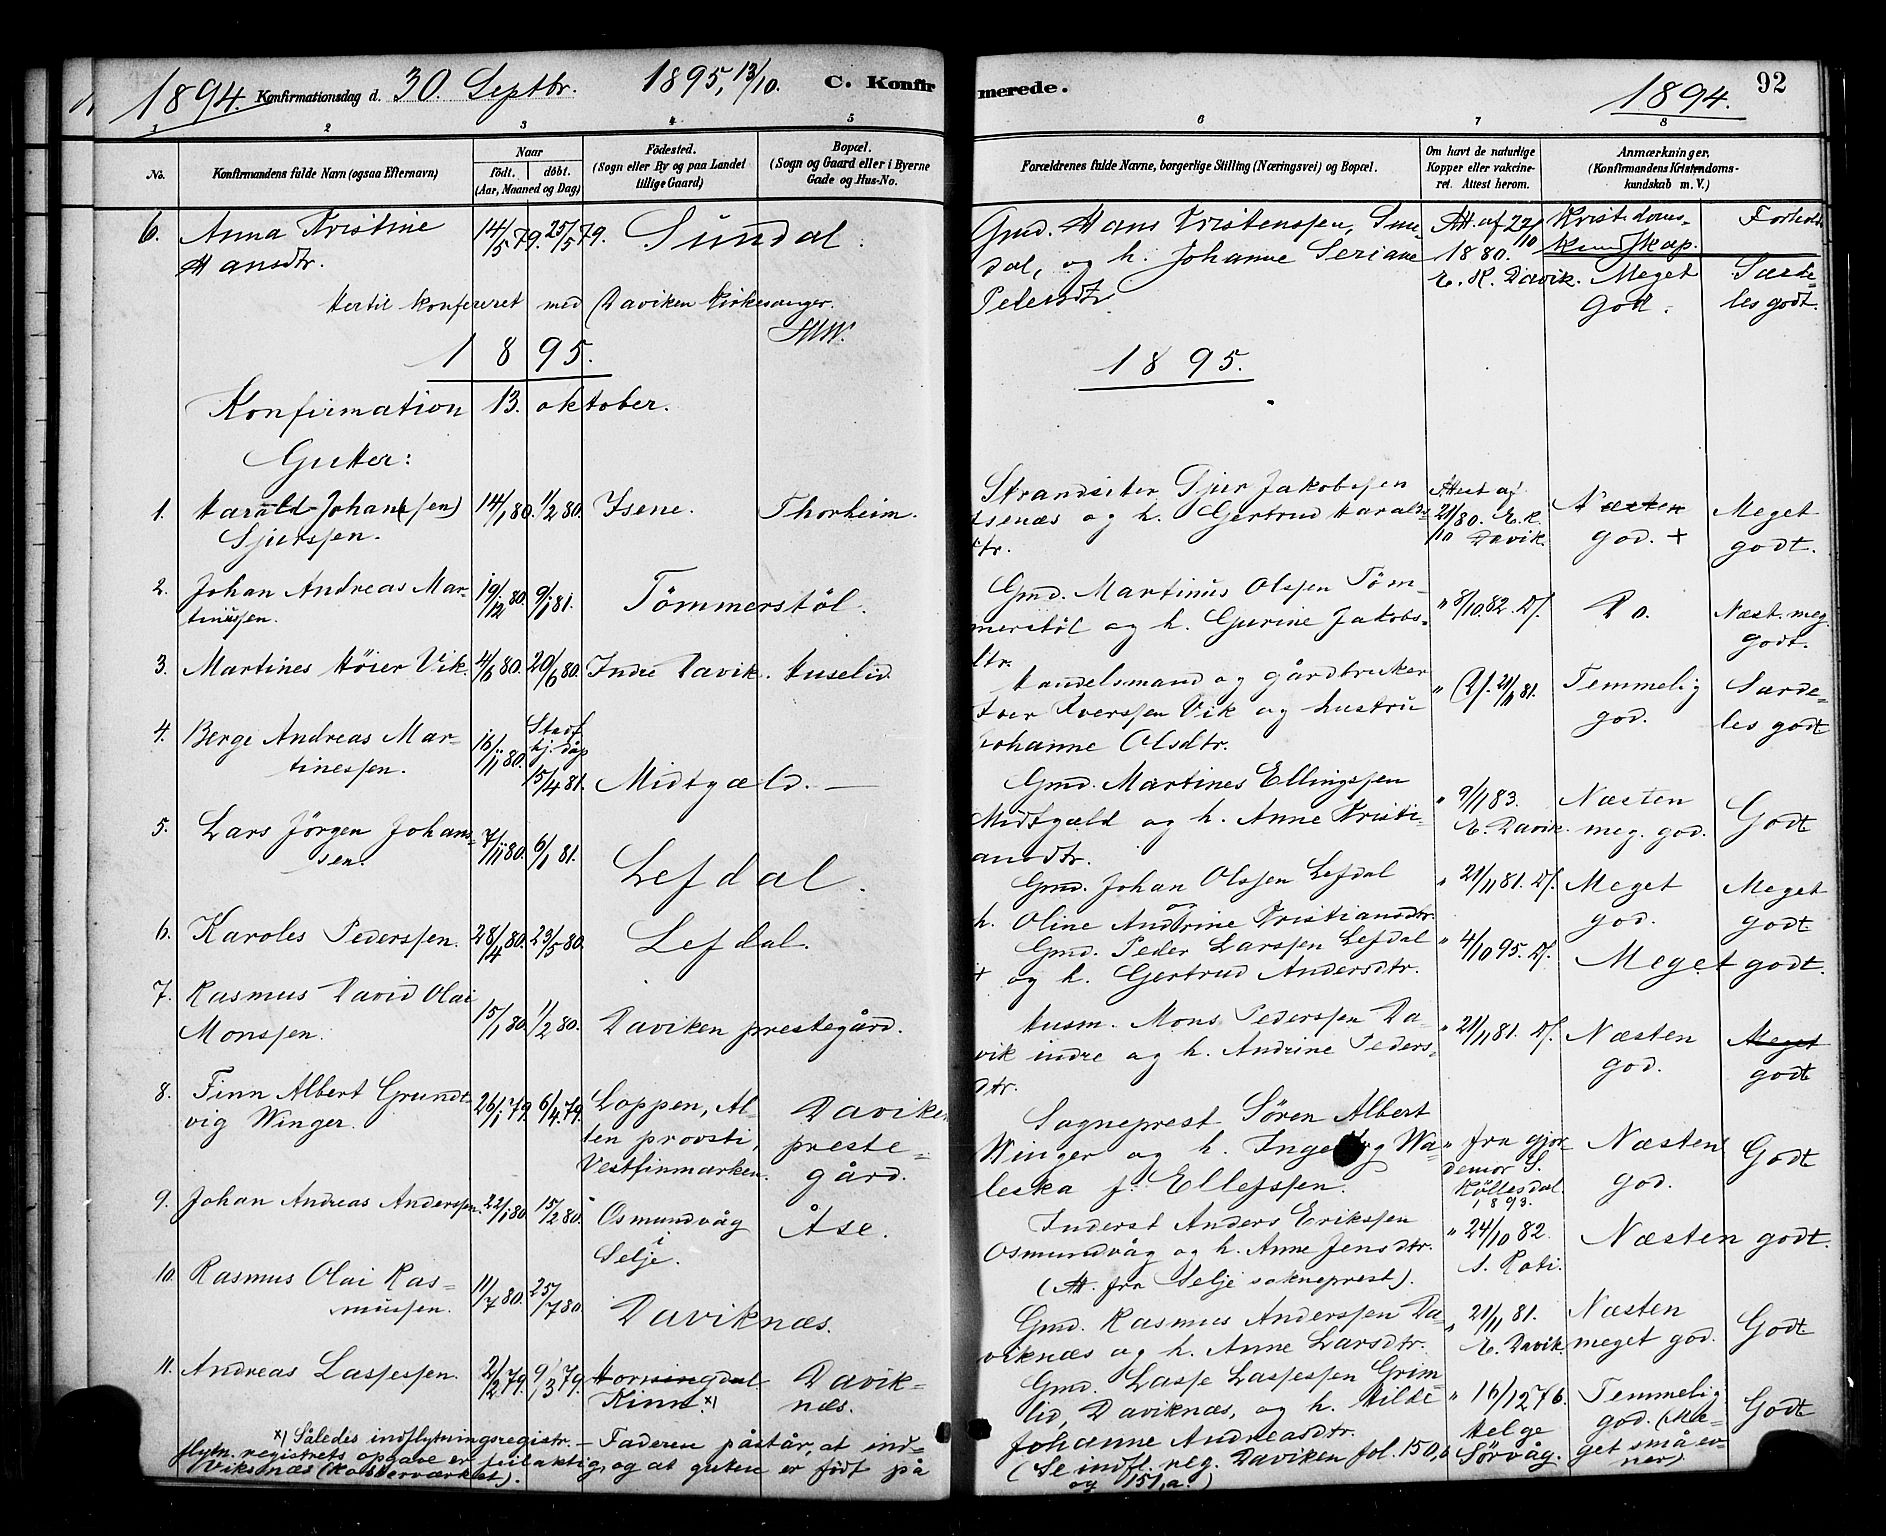 1894. Konfirmationsdag d. 30. Septbr. 1895, 13/10. C. Konfir
merede. 1894. 92
1 2 3 4 5
6 7 8
No. Konfirmandens fulde Navn (ogsaa Efternavn) Naar
født. døbt.
(Aar, Maaned og Dag)
Fødested.
(Sogn eller By og paa Landet
tillige Gaard)
Bopæl.
(Sogn og Gaard eller i Byerne
Gade og Hus-No.
Forældrenes fulde Navne, borgerlige Stilling (Næringsvei) og Bopæl.
Om havt de naturlige
Kopper eller vakcine-
ret. Attest herom.
Anmærkninger.
(Konfirmandens Kristendoms-
kundskab m. V.)
6. Anna Kristine
Hansdtr.
14/5 79. 25/5 79. Sundal.
Gmd. Hans Kristenssen, Sun-
dal, og h. Johanne Seriane
Pedersdtr.
Att. af 22/10
1880.
E. K. Davik.
Kristendoms-
kundskap.
Meget
god.
Forhold
Særde-
les godt.
Hertil konfereret med Daviken kirkesanger.
1895.
1895.
Konfirmation 13. oktober.
Gutter:
1. Harald Johan(sen)
Sjurssen.
14/1 80. 1/2 80. Isene. Thorheim.
Strandsiter Sjur Jakobssen
Isenæs og h. Gertrud Haralds-
dtr.
Attest af
21/10 80. E. K.
Davik.
Næsten
god. +
Meget
godt.
2. Johan Andreas Mar-
tinussen.
19/12 80. 9/1 81. Tømmerstøl.
Gmd. Martinus Olssen Tøm-
merstøl og h. Gjurine Jakobs-
dtr.
" 8/10 82. Ds.
Do.
Næst. meg.
godt.
3. Martines Høier Vik.
4/6 80. 20/6 80. Indre Davik. Huselid.
Handelsmand og gårdbruker
Iver Iverssen Vik og hustru
Johanne Olsdtr.
" Ds. 21/11 81.
Temmelig
god.
Særde-
les godt
4. Berge Andreas Mar-
tinessen.
16/11 80. Stadf.
hj. dåp
15/4 81. Midtgæld. —
Gmd. Martines Ellingssen
Midtgæld og h. Anne Kristi-
ansdtr.
" 9/1 83.
E. Davik.
Næsten
meg. god.
Godt
5. Lars Jørgen Johans-
sen.
7/11 80. 6/1 81. Lefdal.
Gmd. Johan Olssen Lefdal
og
h. Oline Andrine Kristiansdtr.
" 21/11 81. Ds.
Meget
god.
Meget
godt
6. Karoles Pederssen.
28/4 80. 23/5 80. Lefdal.
Gmd. Peder Larssen Lefdal
+ og h. Gertrud Andersdtr.
" 4/10 95. Ds.
Meget godt.
7. Rasmus David Olai
Monssen.
15/1 80. 1/2 80. Daviken prestegård.
Husm. Mons Pederssen Da-
vik indre og h. Andrine Peders-
dtr.
" 21/11 81. Ds.
Næsten
god.
Meget
godt
8. Finn Albert Grundt-
vig Winger.
26/1 79. 6/4 79. Loppen, Al-
ten provsti,
Vestfinmarken.
Daviken
preste-
gård.
Sogneprest Søren Albert
Winger og h. Ingeborg Wa-
leska f. Ellefssen.
" fra gjor-
demor S.
Køllesdal
1893.
Næsten
god.
Godt
9. Johan Andreas Anderssen.
22/1 80. 15/2 80. Osmundvåg
i
Selje.
Åse.
Inderst Anders Erikssen
Osmundvåg og h. Anne Jensdtr.
(Att. fra Selje sokneprest).
" 24/10 82.
Næsten godt.
10. Rasmus Olai Ras-
mussen.
11/7 80. 25/7 80. Daviknæs.
Gmd. Rasmus Anderssen Da-
viknæs og h. Anne Larsdtr.
" 21/11 81.
E. Davik.
Næsten
meget god.
Godt
11. Andreas Lassessen.
2/2 79. 9/3 79. Horningdal.
Kinn. x)
Davik-
næs.
Gmd. Lasse Lassessen Grim-
lid, Daviknæs, og h. Hilde
Johanne Andreasdtr.
(Se indfl. reg. Daviken fol. 150,b
og 151,a.)
" 16/12 76.
Helge
Sørvåg.
Temmelig
god. (Me-
get små ev-
ner)
Godt
x) Således indflytningsregistr. — Faderen påstår, at ind-
flytn. registrets opgave er feilaktig, og at gutten er født på
Viksnæs (Kobberværket).